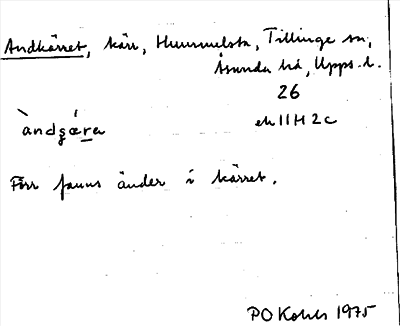 Andkärret, kärr, Hummelsta, Tillinge sn,
Åsunda hd, Upps. l.
26
ek 11H2c
àndʒǽra
Förr fanns änder i kärret.
PO Kohls 1975